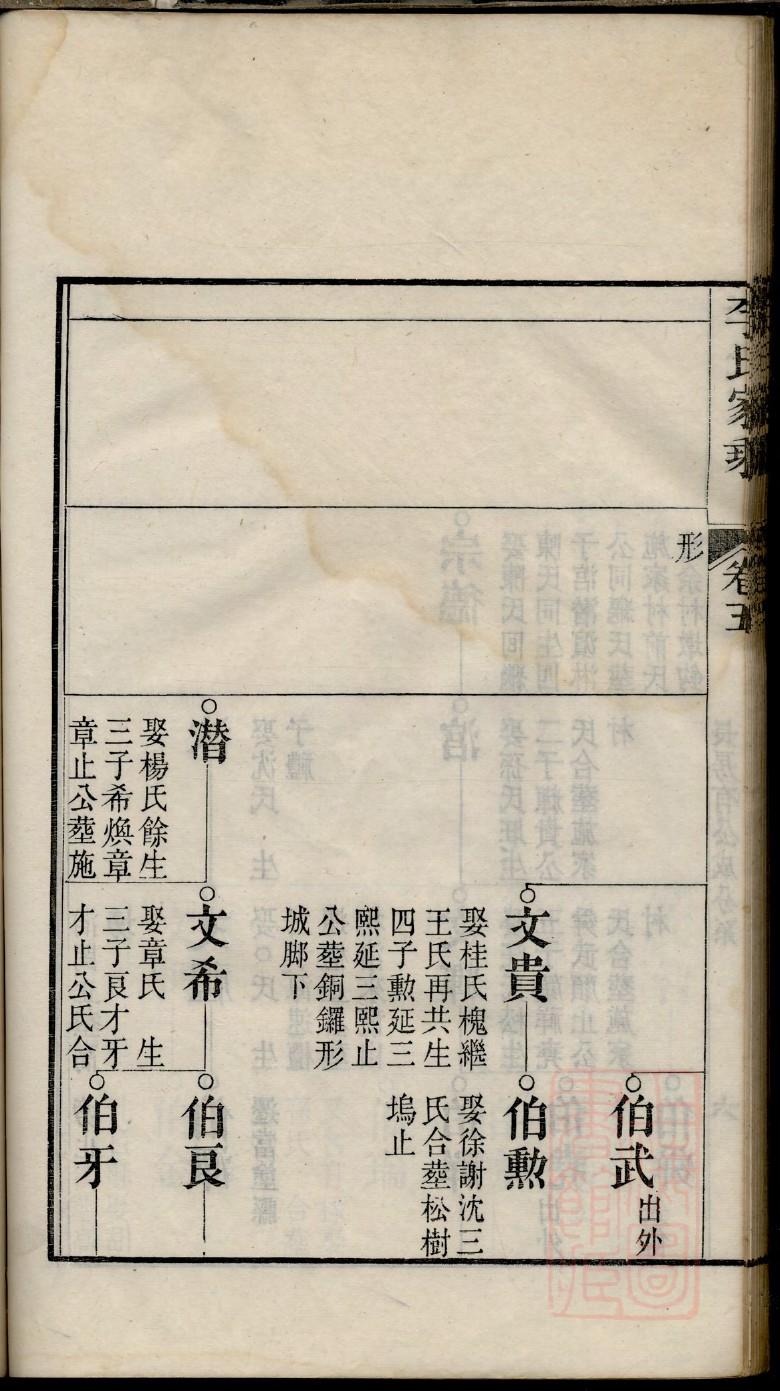 李氏家乘
卷五
形
伯武
出外
文貴
娶桂氏槐繼
王氏再共生
四子勳延三
熙延三熙止
公塟銅鑼形
城脚下
伯勳
娶徐謝沈三
氏合塟松樹
塢止
潜
娶楊氏餘生
三子希煥章
章止公塟施
文希
娶章氏　生
三子良才牙
才止公氏合
伯良
伯牙